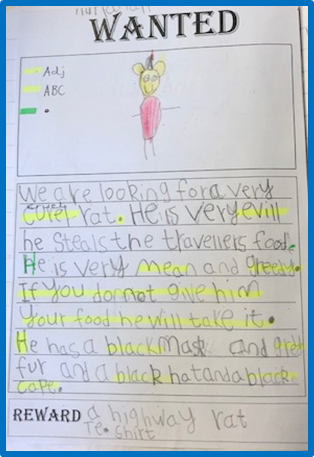 WANTED
Adj
ABC
.
We are looking for a very
cruel
curel rat. He is very evill
he steals the travellers food.
He is very mean and greedy.
If you do not give him
your food he will take it.
He has a black mask and grey
fur and a black hat and a black
cape.
REWARD a highway rat
Te. shirt